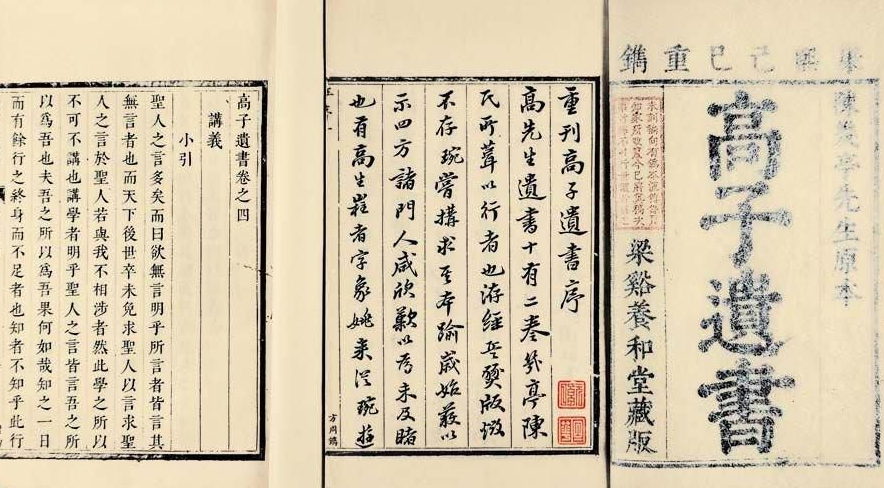 康熙己巳重鐫
陳幾亭先生原本
高子遺書
梁谿養和堂藏版
重刊高子遺書序
高先生遺書十有二卷幾亭陳
氏所葺以行者也經兵燹版燬
不存琬嘗搆求本踰歲始获以
示四方諸門人咸欣歎以為未及睹
也有高生者字象姚来從琬遊
高子遺書卷之四
講義
小引
聖人之言多矣而曰欲無言明乎所言者皆言其
無言者也而天下後世卒未免求聖人以言求聖
人之言於聖人若與我不相涉者然此學之所以
不可不講也講學者明乎聖人之言皆言吾之所
以爲吾也夫吾之所以爲吾果何如哉知之一日
而有餘行之終身而不足者也知者不知乎此行